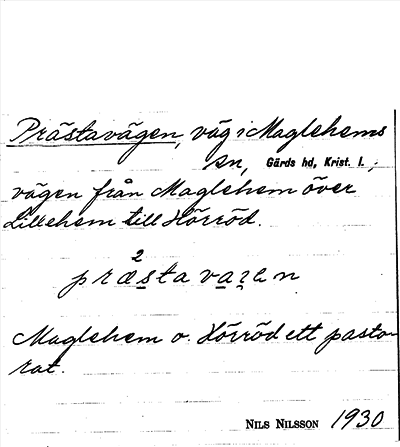 Prästavägen, väg i Maglehems
sn, Gärds hd, Krist. l.;
vägen från Maglehem över
Lillehem till Hörröd.
2
præstavaꝛen
Maglehem o. Hörröd ett pasto-
rat.
NILS NILSSON 1930